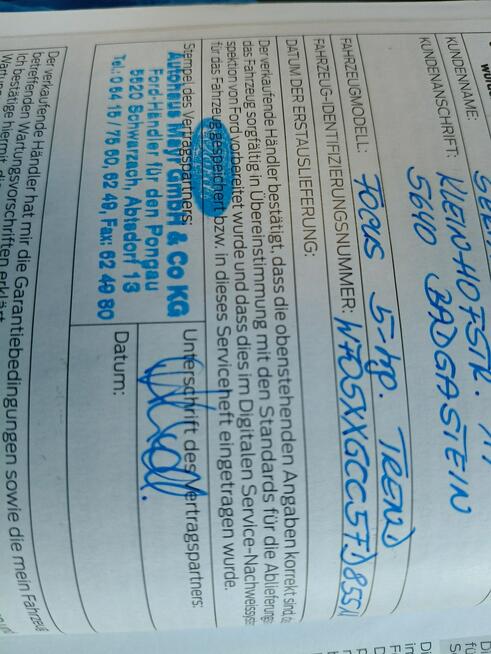 KUNDENNAME:
KUNDENANSCHRIFT: KLEINHOFSTR.
5640 BADGASTEIN
FAHRZEUGMODELL: FOCUS 5-tg. TREND
FAHRZEUG-IDENTIFIZIERUNGSNUMMER:
DATUM DER ERSTAUSLIEFERUNG:
Der verkaufende Händler bestätigt, dass die obenstehenden Angaben korrekt sind,
das Fahrzeug sorgfältig in Übereinstimmung mit den Standards für die Ablieferungs
spektion von Ford vorbereitet wurde und dass dies im Digitalen Service-Nachweissys
für das Fahrzeug gespeichert bzw. in dieses Serviceheft eingetragen wurde.
Stempel des Vertragspartners:
Unterschrift des Vertragspartners:
Autohaus GmbH & Co KG
Ford-Händler für den Pongau
5620 Schwarzach, Abtsdorf 13
Tel.: 64 15 / 75 60, 62 49, Fax: 62 49 80
Datum:
Der verkaufende Händler hat mir die Garantiebedingungen sowie die mein Fahrzeug
betreffenden Wartungsvorschriften erklärt.
Ich bestätige hiermit